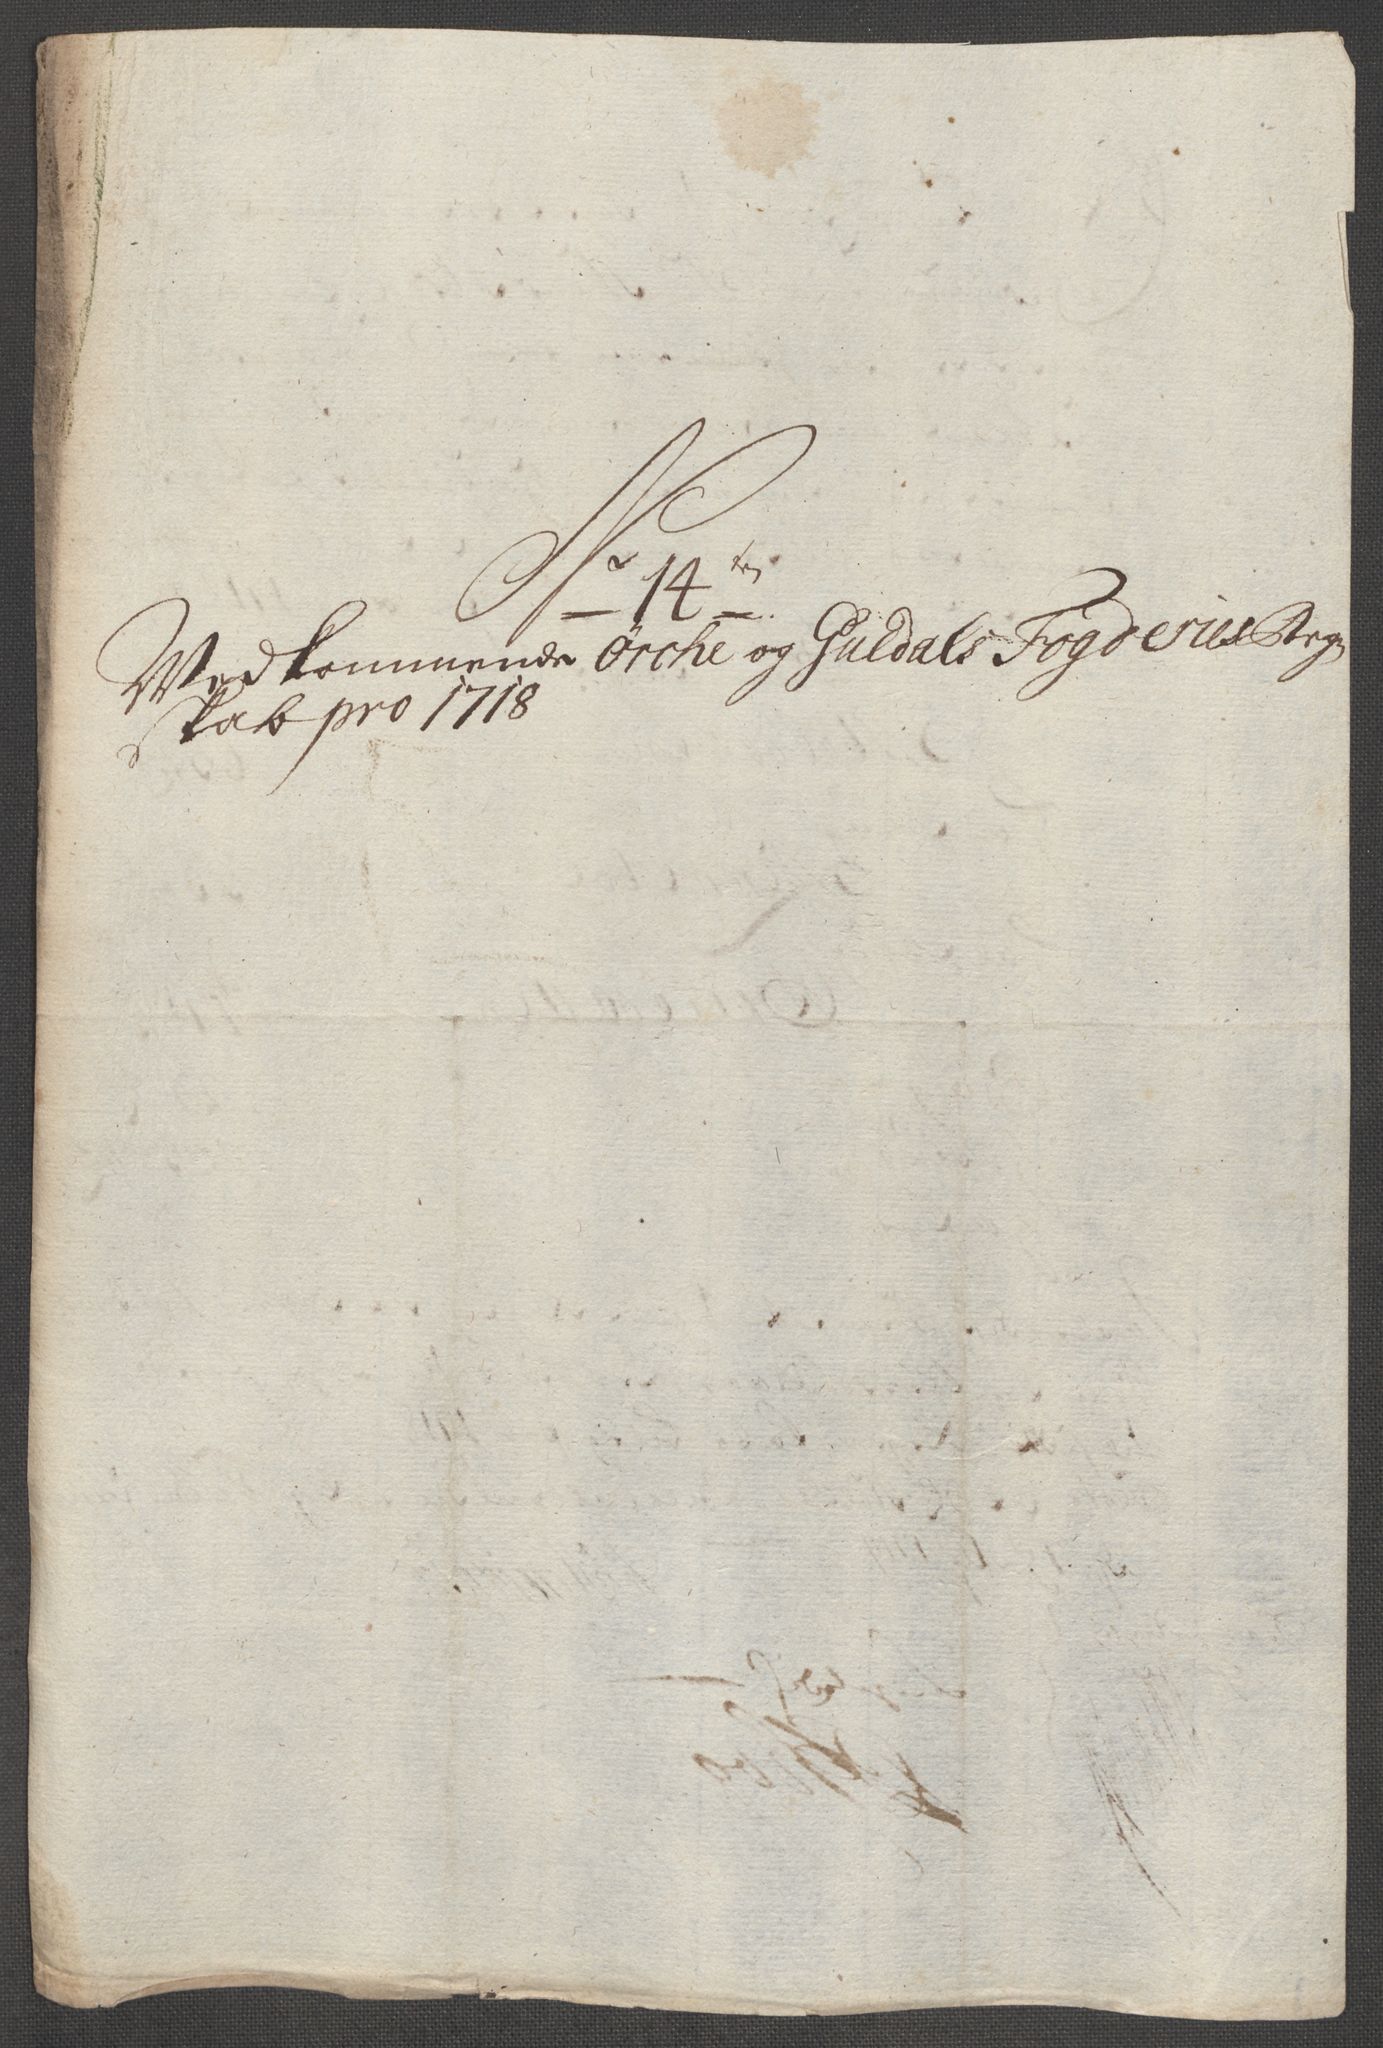 No 14ten
Wedkommende Örche og Guldals Fogderies Regn
skab pro 1718